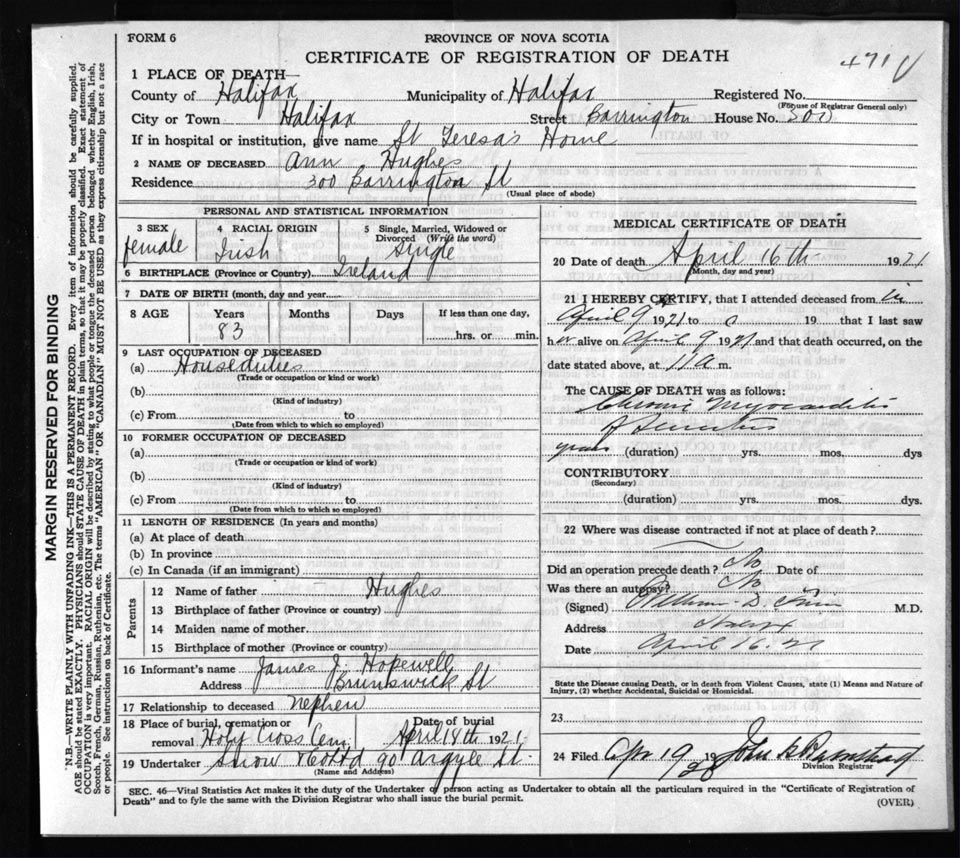 FORM 6
PROVINCE OF NOVA SCOTIA
CERTIFICATE OF REGISTRATION OF DEATH
471
1 PLACE OF DEATH—
County of Halifax Municipality of Halifax Registered No.
(For use of Registrar General only)
City or Town Halifax Street Barrington House No. 300
If in hospital or institution, give name St Teresa's Home
2 NAME OF DECEASED Ann Hughes
Residence 300 Barrington St
(Usual place of abode)
PERSONAL AND STATISTICAL INFORMATION
3 SEX 4 RACIAL ORIGIN 5 Single, Married, Widowed or Divorced (Write the word)
female Irish Single
6 BIRTHPLACE (Province or Country) Ireland
7 DATE OF BIRTH (month, day and year)
8 AGE Years Months Days If less than one day,
83 hrs. or min.
9 LAST OCCUPATION OF DECEASED
(a) Houseduties
(Trade or occupation or kind or work)
(b)
(Kind of industry)
(c) From to
(Date from which to which so employed)
10 FORMER OCCUPATION OF DECEASED
(a)
(Trade or occupation or kind of work)
(b)
(Kind of industry)
(c) From to
(Date from which to which so employed)
11 LENGTH OF RESIDENCE (In years and months)
(a) At place of death
(b) In province
(c) In Canada (if an immigrant)
Parents
12 Name of father Hughes
13 Birthplace of father (Province or country)
14 Maiden name of mother
15 Birthplace of mother (Province or country)
16 Informant's name James J. Hopewell
Address Brunswick St
17 Relationship to deceased nephew
18 Place of burial, cremation or Date of burial
removal Holy Cross Cem April 18th 1921
19 Undertaker Snow & Co Ltd 90 Argyle St.
(Name and Address)
MEDICAL CERTIFICATE OF DEATH
20 Date of death April 16th 1921
(Month, day and year)
21 I HEREBY CERTIFY, that I attended deceased from in
April 9 1921 to 19 that I last saw
her alive on April 9 1921 and that death occurred, on the
date stated above, at 11 a m.
The CAUSE OF DEATH was as follows:
Chronic Myocarditis
years (duration) yrs. mos. dys
CONTRIBUTORY
(Secondary)
(duration) yrs. mos. dys.
22 Where was disease contracted if not at place of death?
Did an operation precede death? No Date of
Was there an autopsy? No
(Signed) William D. M.D.
Address Halifax
Date April 16. 21
State the Disease causing Death, or in death from Violent Causes, state (1) Means and Nature of
Injury, (2) whether Accidental, Suicidal or Homicidal.
23
24 Filed Apr 19 19 John
Division Registrar
SEC. 46—Vital Statistics Act makes it the duty of the Undertaker or person acting as Undertaker to obtain all the particulars required in the "Certificate of Registration of
Death" and to fyle the same with the Division Registrar who shall issue the burial permit.
(OVER)
MARGIN RESERVED FOR BINDING
N.B.—WRITE PLAINLY WITH UNFADING INK—THIS IS A PERMANENT RECORD. Every item of information should be carefully supplied.
AGE should be stated EXACTLY. PHYSICIANS should STATE CAUSE OF DEATH in plain terms, so that it may be properly classified. Exact statement of
OCCUPATION is very important. RACIAL ORIGIN will be described by stating to what people or tongue the deceased person belonged whether English, Irish,
Scotch, French, German, Russian, Ruthenian, etc. The terms "AMERICAN" OR "CANADIAN" MUST NOT BE USED as they express citizenship but not a race
or people. See instructions on back of Certificate.